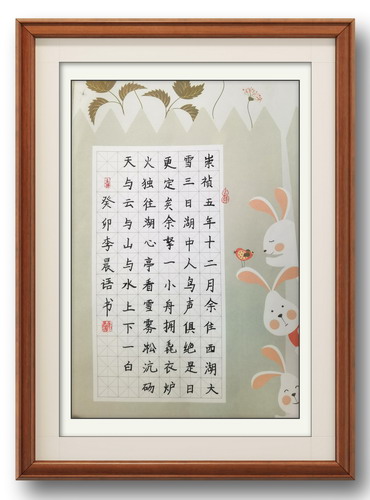 崇祯五年十二月余住西湖大
雪三日湖中人鸟声俱绝是日
更定矣余拏一小舟拥毳衣炉
火独往湖心亭看雪雾凇沆砀
天与云与山与水上下一白
癸卯李晨语书